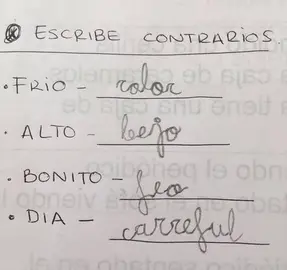 ESCRIBE CONTRARIOS
· FRIO - calor
· ALTO - bejo
· BONITO - feo
· DIA - carreful